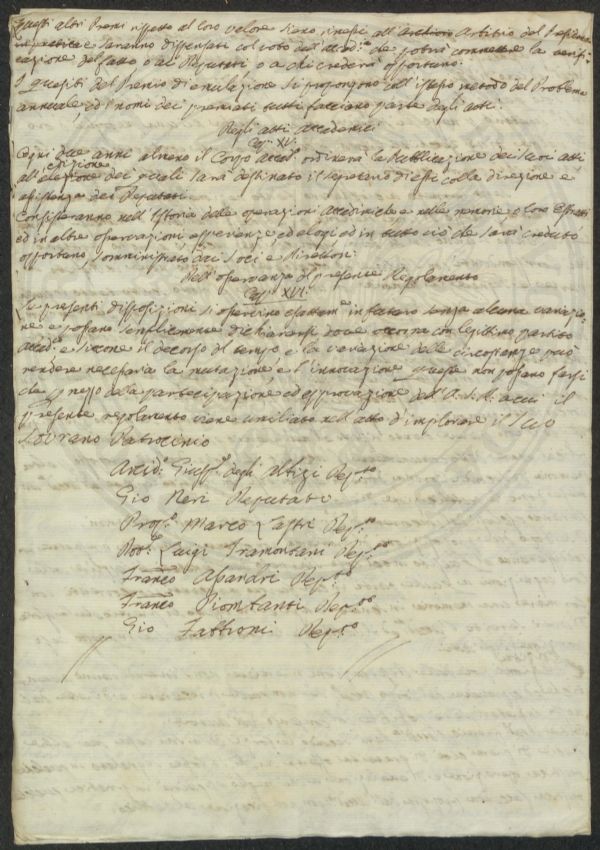 Questi altri Premi rispetto al loro valore siano rimessi all' Arbitrio del
in pratica e saranno dispensati col voto dell'Accad.a che potrà commettere la verifi-
cazione del fatto o ai Deputati o a chi crederà opportuno.
I quesiti del Premio di emulazione si propongono coll'istesso metodo del Problema
annuale, ed i nomi dei premiati tutti facciano parte degli atti.
Degli atti accademici
Cap. XV.
Ogni due anni almeno il Corpo Accad.o ordinerà la Pubblicazione dei suoi atti
all' edizione dei quali sarà destinato il Segretario di essi colla direzione e
assistenza dei Deputati.
Consisteranno nell'Istoria delle operazioni Accademiche e nelle memorie o loro Estratti
ed in altre osservazioni esperienze, ed elogi ed in tutto ciò che sarà creduto
opportuno, somministrato dai Soci e Direttori.
Dell'osservanza del presente Regolamento
Cap. XVI.
Le presenti disposizioni si osservino esattam.e in futuro senza alcuna variazio-
ne e possano semplicemente dichiararsi dove occorra con legittimo partito
Accad.o e siccome il decorso del tempo e la variazione delle circostanze può
rendere necessaria la mutazione, e l'innovazione queste non possano farsi
che p mezzo della partecipazione ed approvazione dell'A.S.R. a cui il
presente regolamento viene umiliato nell'atto d'implorare il Suo
Sovrano Patrocinio
Arcid.o Giuss.e degli Albizi Dep.to
Gio Neri Deputato
Prop.o Marco Lastri Dep.to
Dot.e Luigi Tramontani Dep.to
Franco Dep.to
Franco Piombanti Dep.to
Gio Fabbroni Dep.to